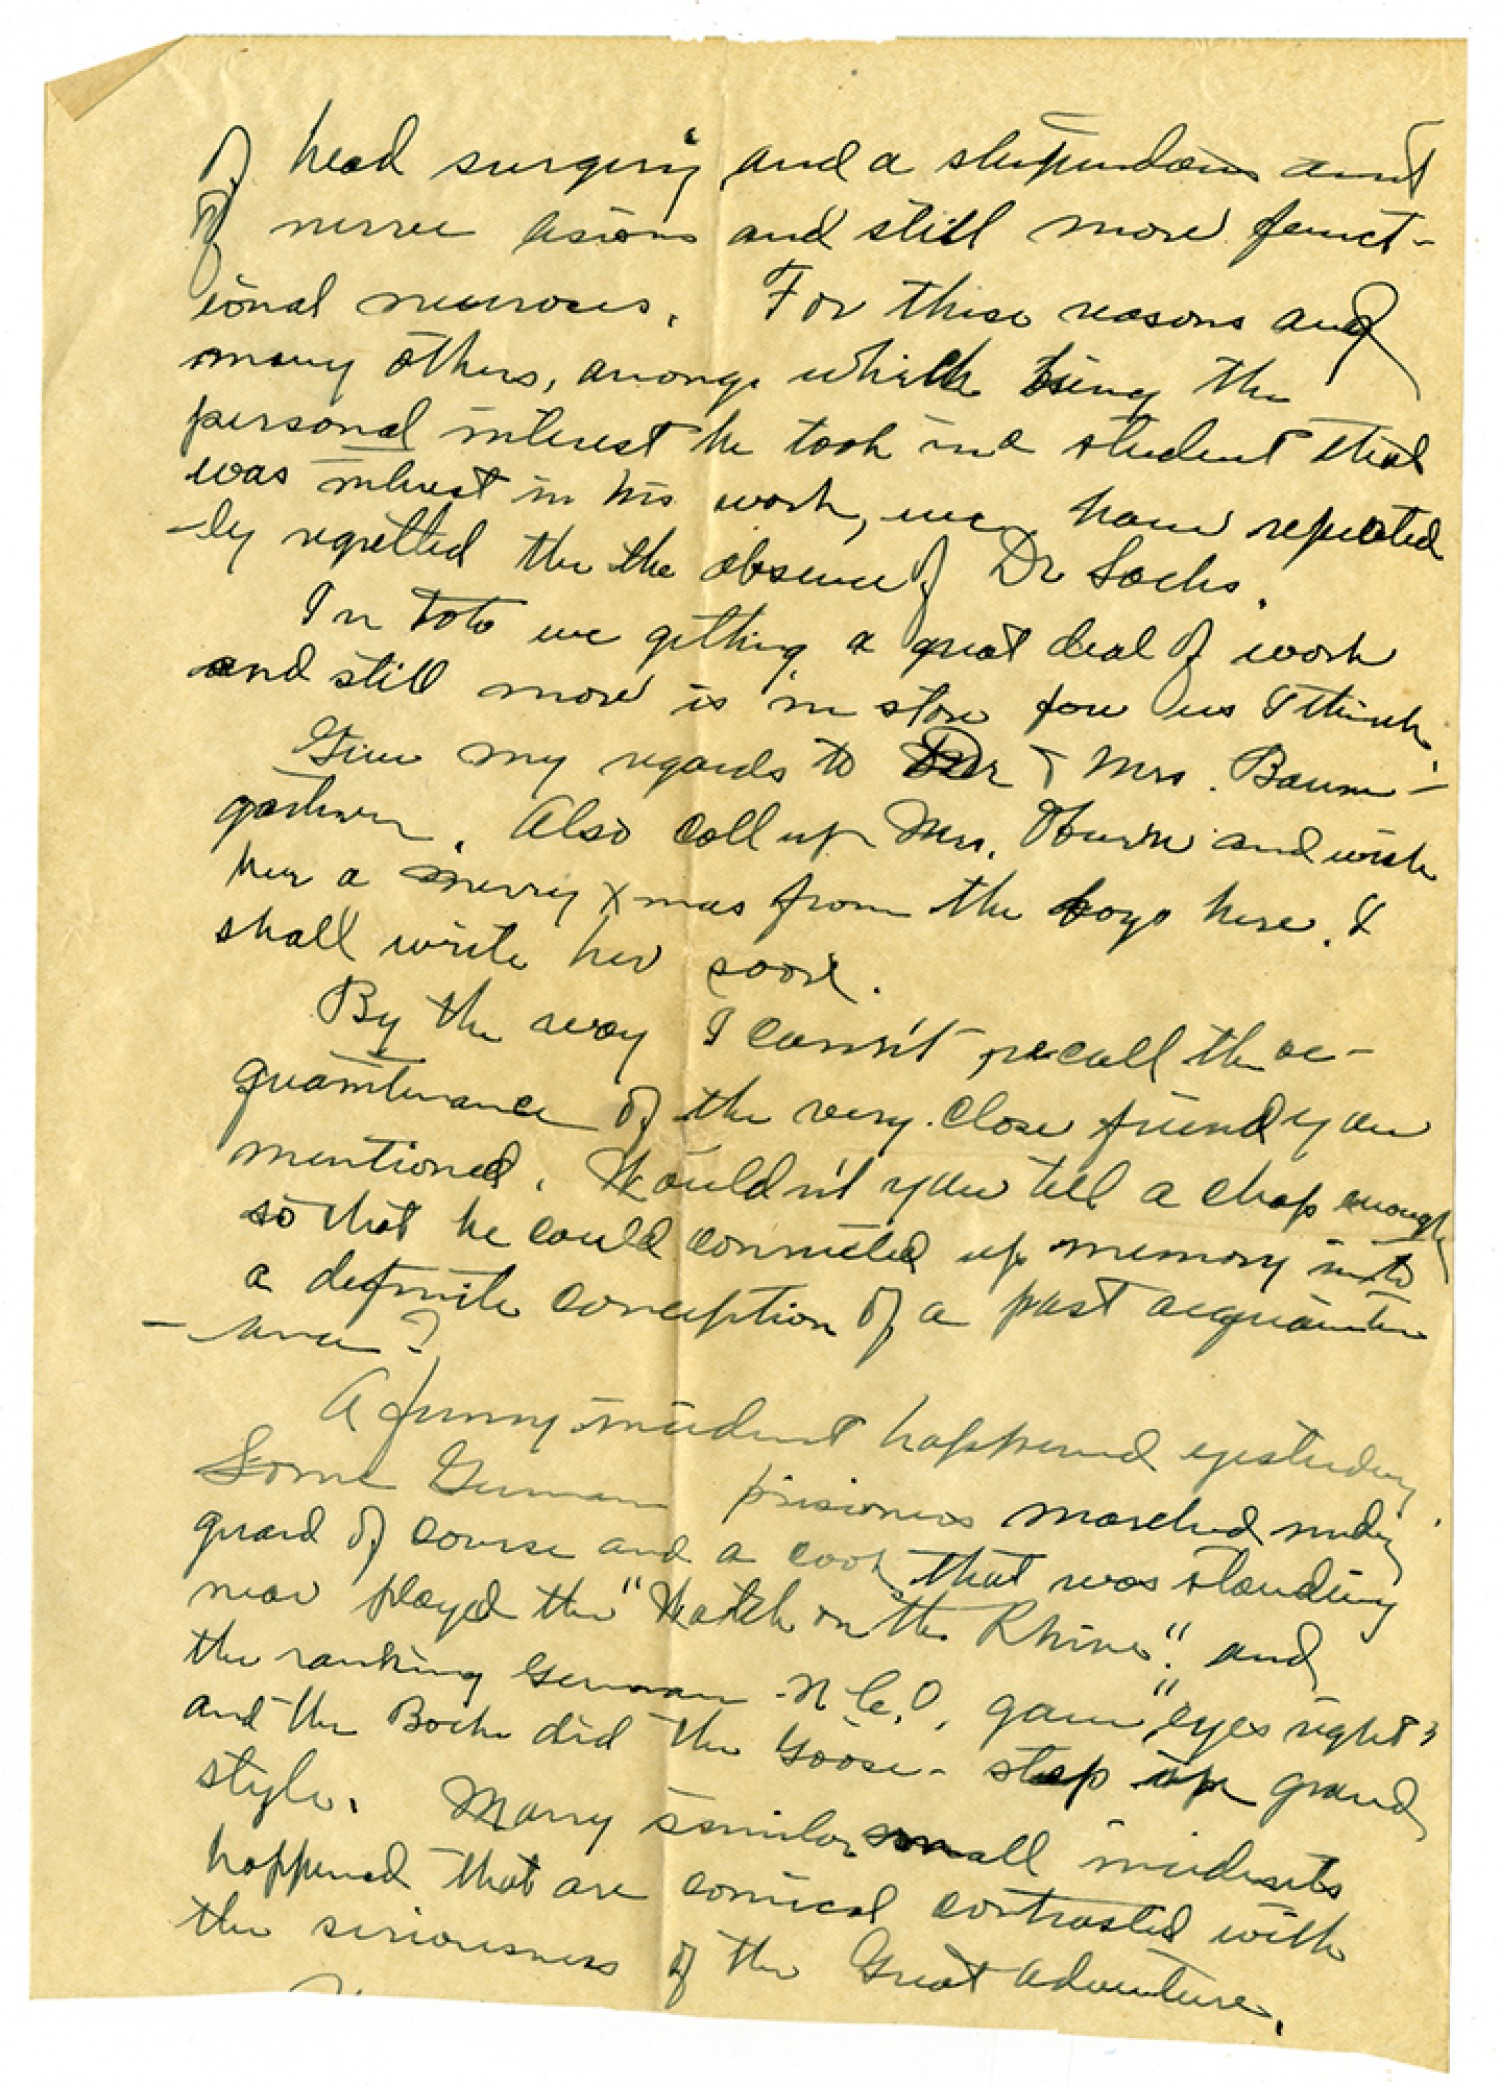 of head surgery and a stupendous amt
of nerve lesions and still more funct-
ional neuroses. For these reasons and
many others, among which being the
personal interest he took in a student that
was interest in his work, we have repeated
-ly regretted the the absence of Dr Sachs.
In toto we getting a great deal of work
and still more is in store for us I think.
Give my regards to Dr & Mrs. Baum-
gartner. Also call up Mrs. and wish
her a merry Xmas from the boys here. I
shall write her soon.
By the way I cann't recall the ac-
quaintenance of the very close friend you
mentioned. Wouldn't you tell a chap enough
so that he could connected up memory into
a definite conception of a past acquainten
-ance?
A funny incident happened yesterday.
Some German prisioners marched under
guard of course and a cook that was standing
near played the "Watch on the Rhine". and
the ranking German N.C.O. gave "eyes right"
and the Boche did the Goose-step in grand
style. Many similar small incidents
happened that are comical contrasted with
the seriousness of the Great Adventure.